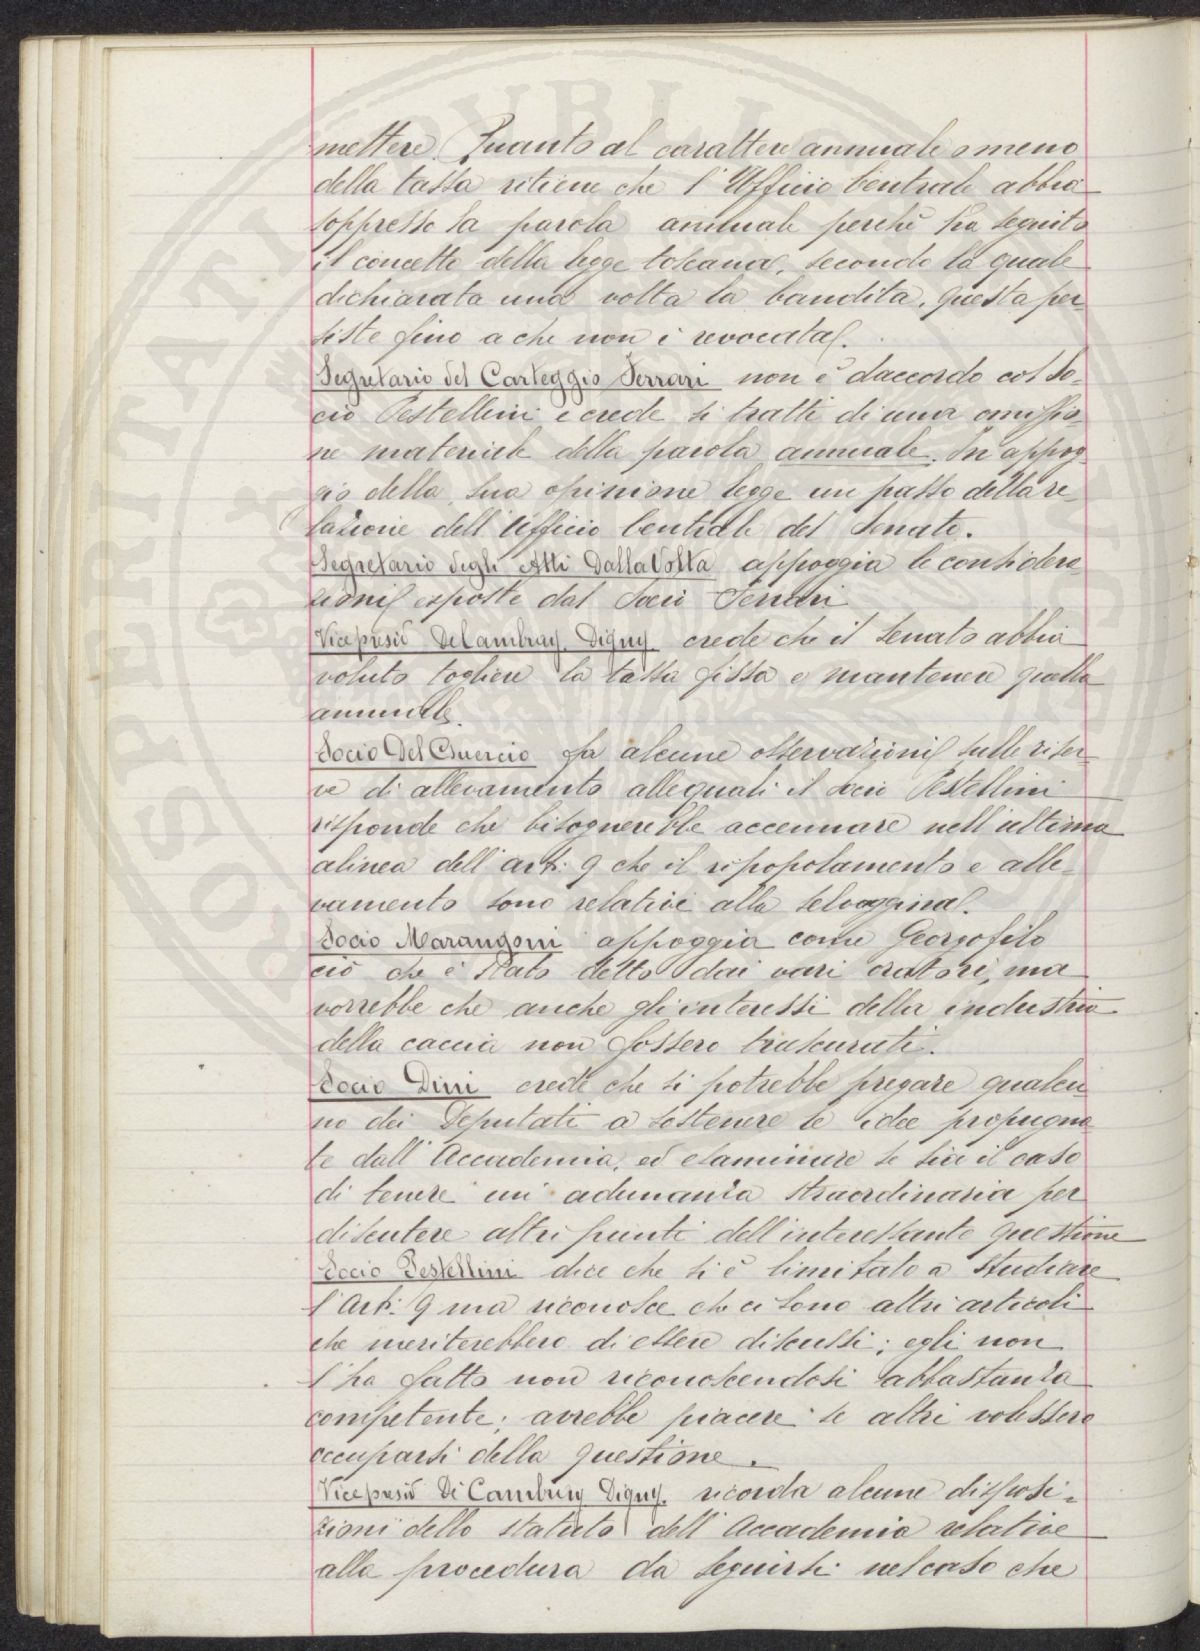 mettere. Quanto al carattere annuale o meno
della tassa ritiene che l'Ufficio Centrale abbia
soppresso la parola annuale perchè ha seguito
il concetto della legge toscana, secondo la quale
dichiarata una volta la bandita, questa per
siste fino a che non è revocata.
Segretario del Carteggio Ferrari non è daccordo col So-
cio Pestellini e crede si tratti di una omissio-
ne materiale della parola annuale. In appog-
gio della sua opinione legge un passo della re
lazione dell'Ufficio Centrale del Senato.
Segretario degli Atti Dalla Volta appoggia le considera-
zioni esposte dal Socio Ferrari
Vicepresid De Cambray Digny crede che il Senato abbia
voluto togliere la tassa fissa e mantenere quella
annuale.
Socio Del Guercio fa alcune osservazioni sulle riser-
ve di allevamento alle quali il Socio Pestellini
risponde che bisognerebbe accennare nell'ultima
alinea dell'art: 9 che il ripopolamento e alle-
vamento sono relative alla selvaggina.
Socio Marangoni appoggia come Georgofilo
ciò che è stato detto dai vari oratori, ma
vorrebbe che anche gli interessi della industria
della caccia non fossero trascurati.
Socio Dini crede che si potrebbe pregare qualcu
no dei Deputati a sostenere le idee propugna
te dall'Accademia, ed esaminare se sia il caso
di tenere un'adunanza straordinaria per
discutere altri punti dell'interessante questione
Socio Pestellini dice che si è limitato a studiare
l'Art: 9 ma riconosce che ci sono altri articoli
che meriterebbero di essere discussi; egli non
l'ha fatto non riconoscendosi abbastanza
competente; avrebbe piacere se altri volessero
occuparsi della questione.
Vicepresid Di Cambray Digny. ricorda alcune disposi-
zioni dello statuto dell'Accademia relative
alla procedura da seguirsi nel caso che